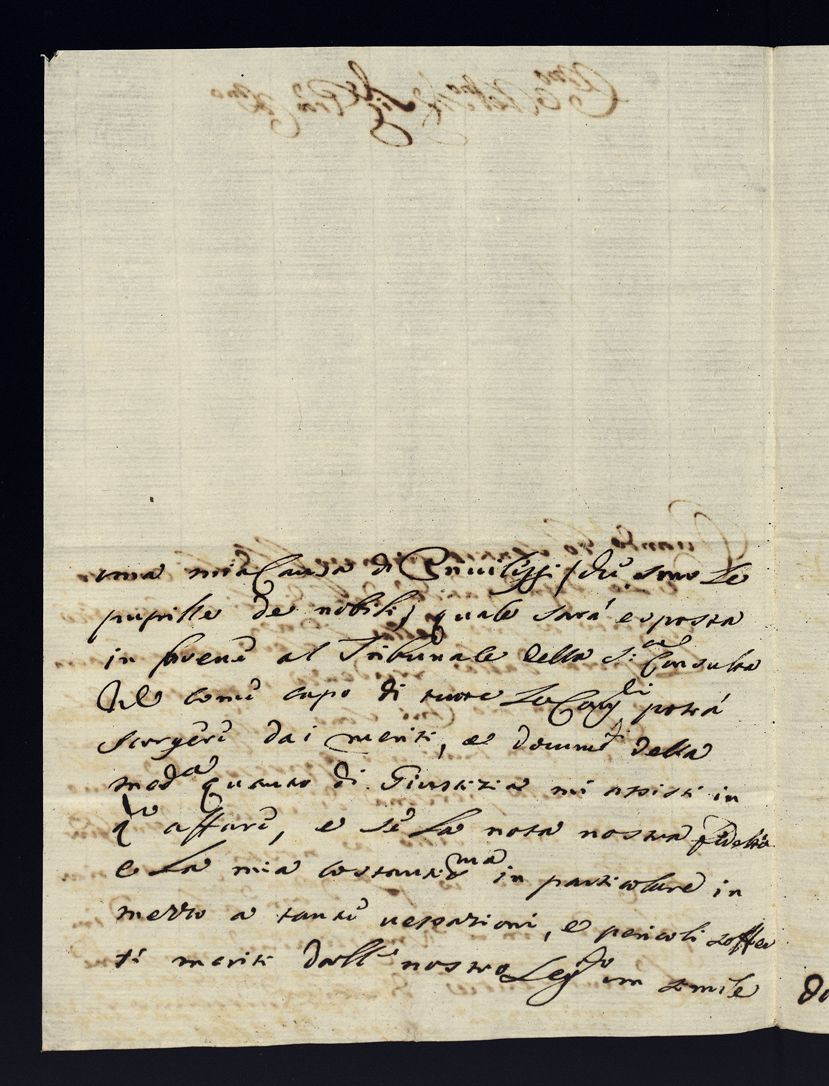 una mia Causa di Privileggi (che sono le
pupille de nobili) quale sarà esposta
in breve al Tribunale della S: Consulta
come capo di tutte le Cong.ni potrà
scorgere dai meriti, e docum.ti della
mad.a quanto di Giustizia mi assisti in
q.o affare, e se la nota nostra fedeltà
e la mia costantis.ma in particolare in
mezzo a tante vessazioni, e pericoli soffer
ti meriti dall nostro un simile